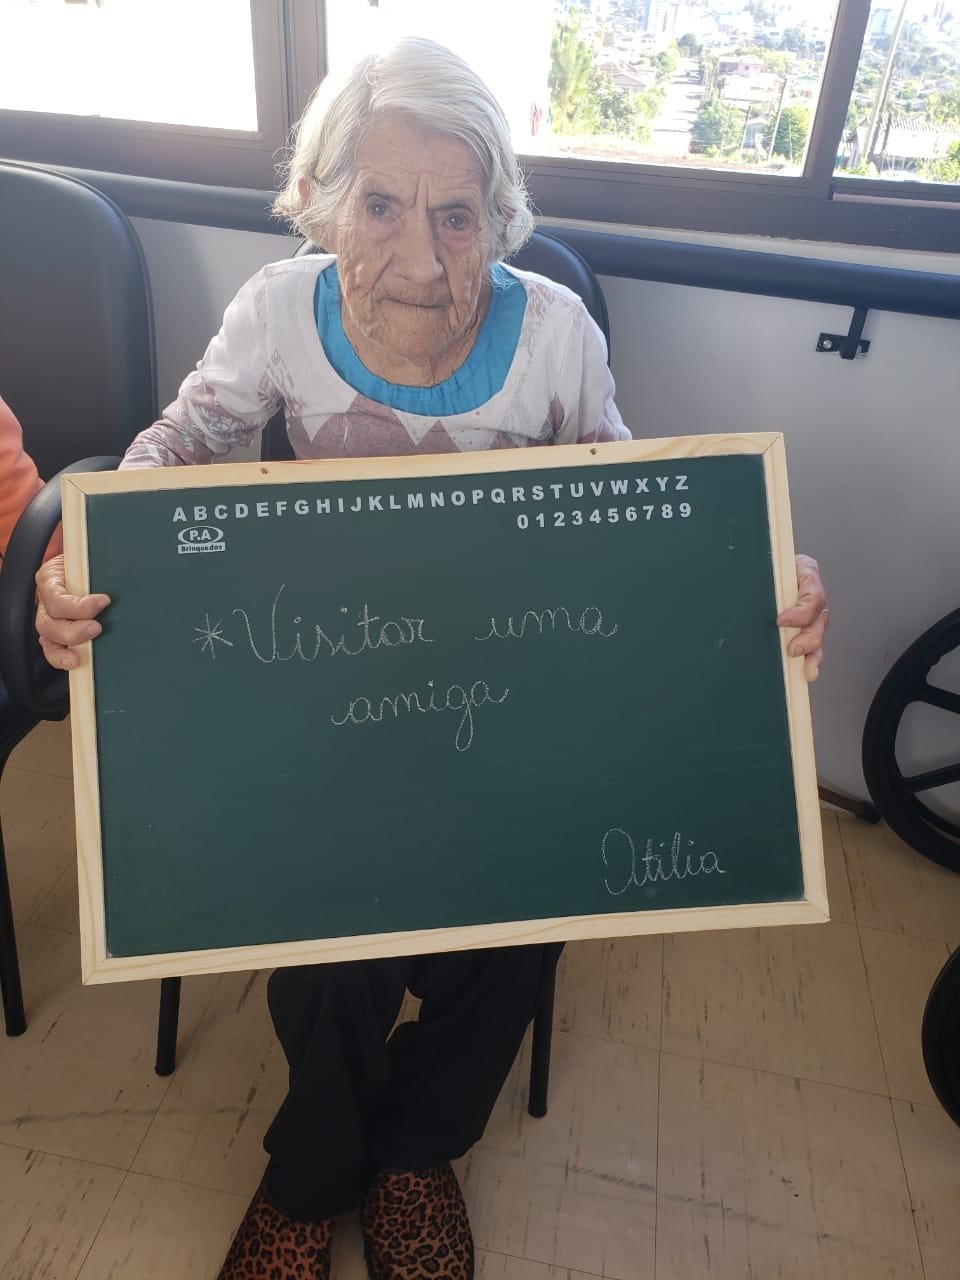 ABCDEFGHIJKLMNOPQRSTUVWXYZ
0123456789
P.A
Brinquedos
*Visitar uma
amiga
Atilia